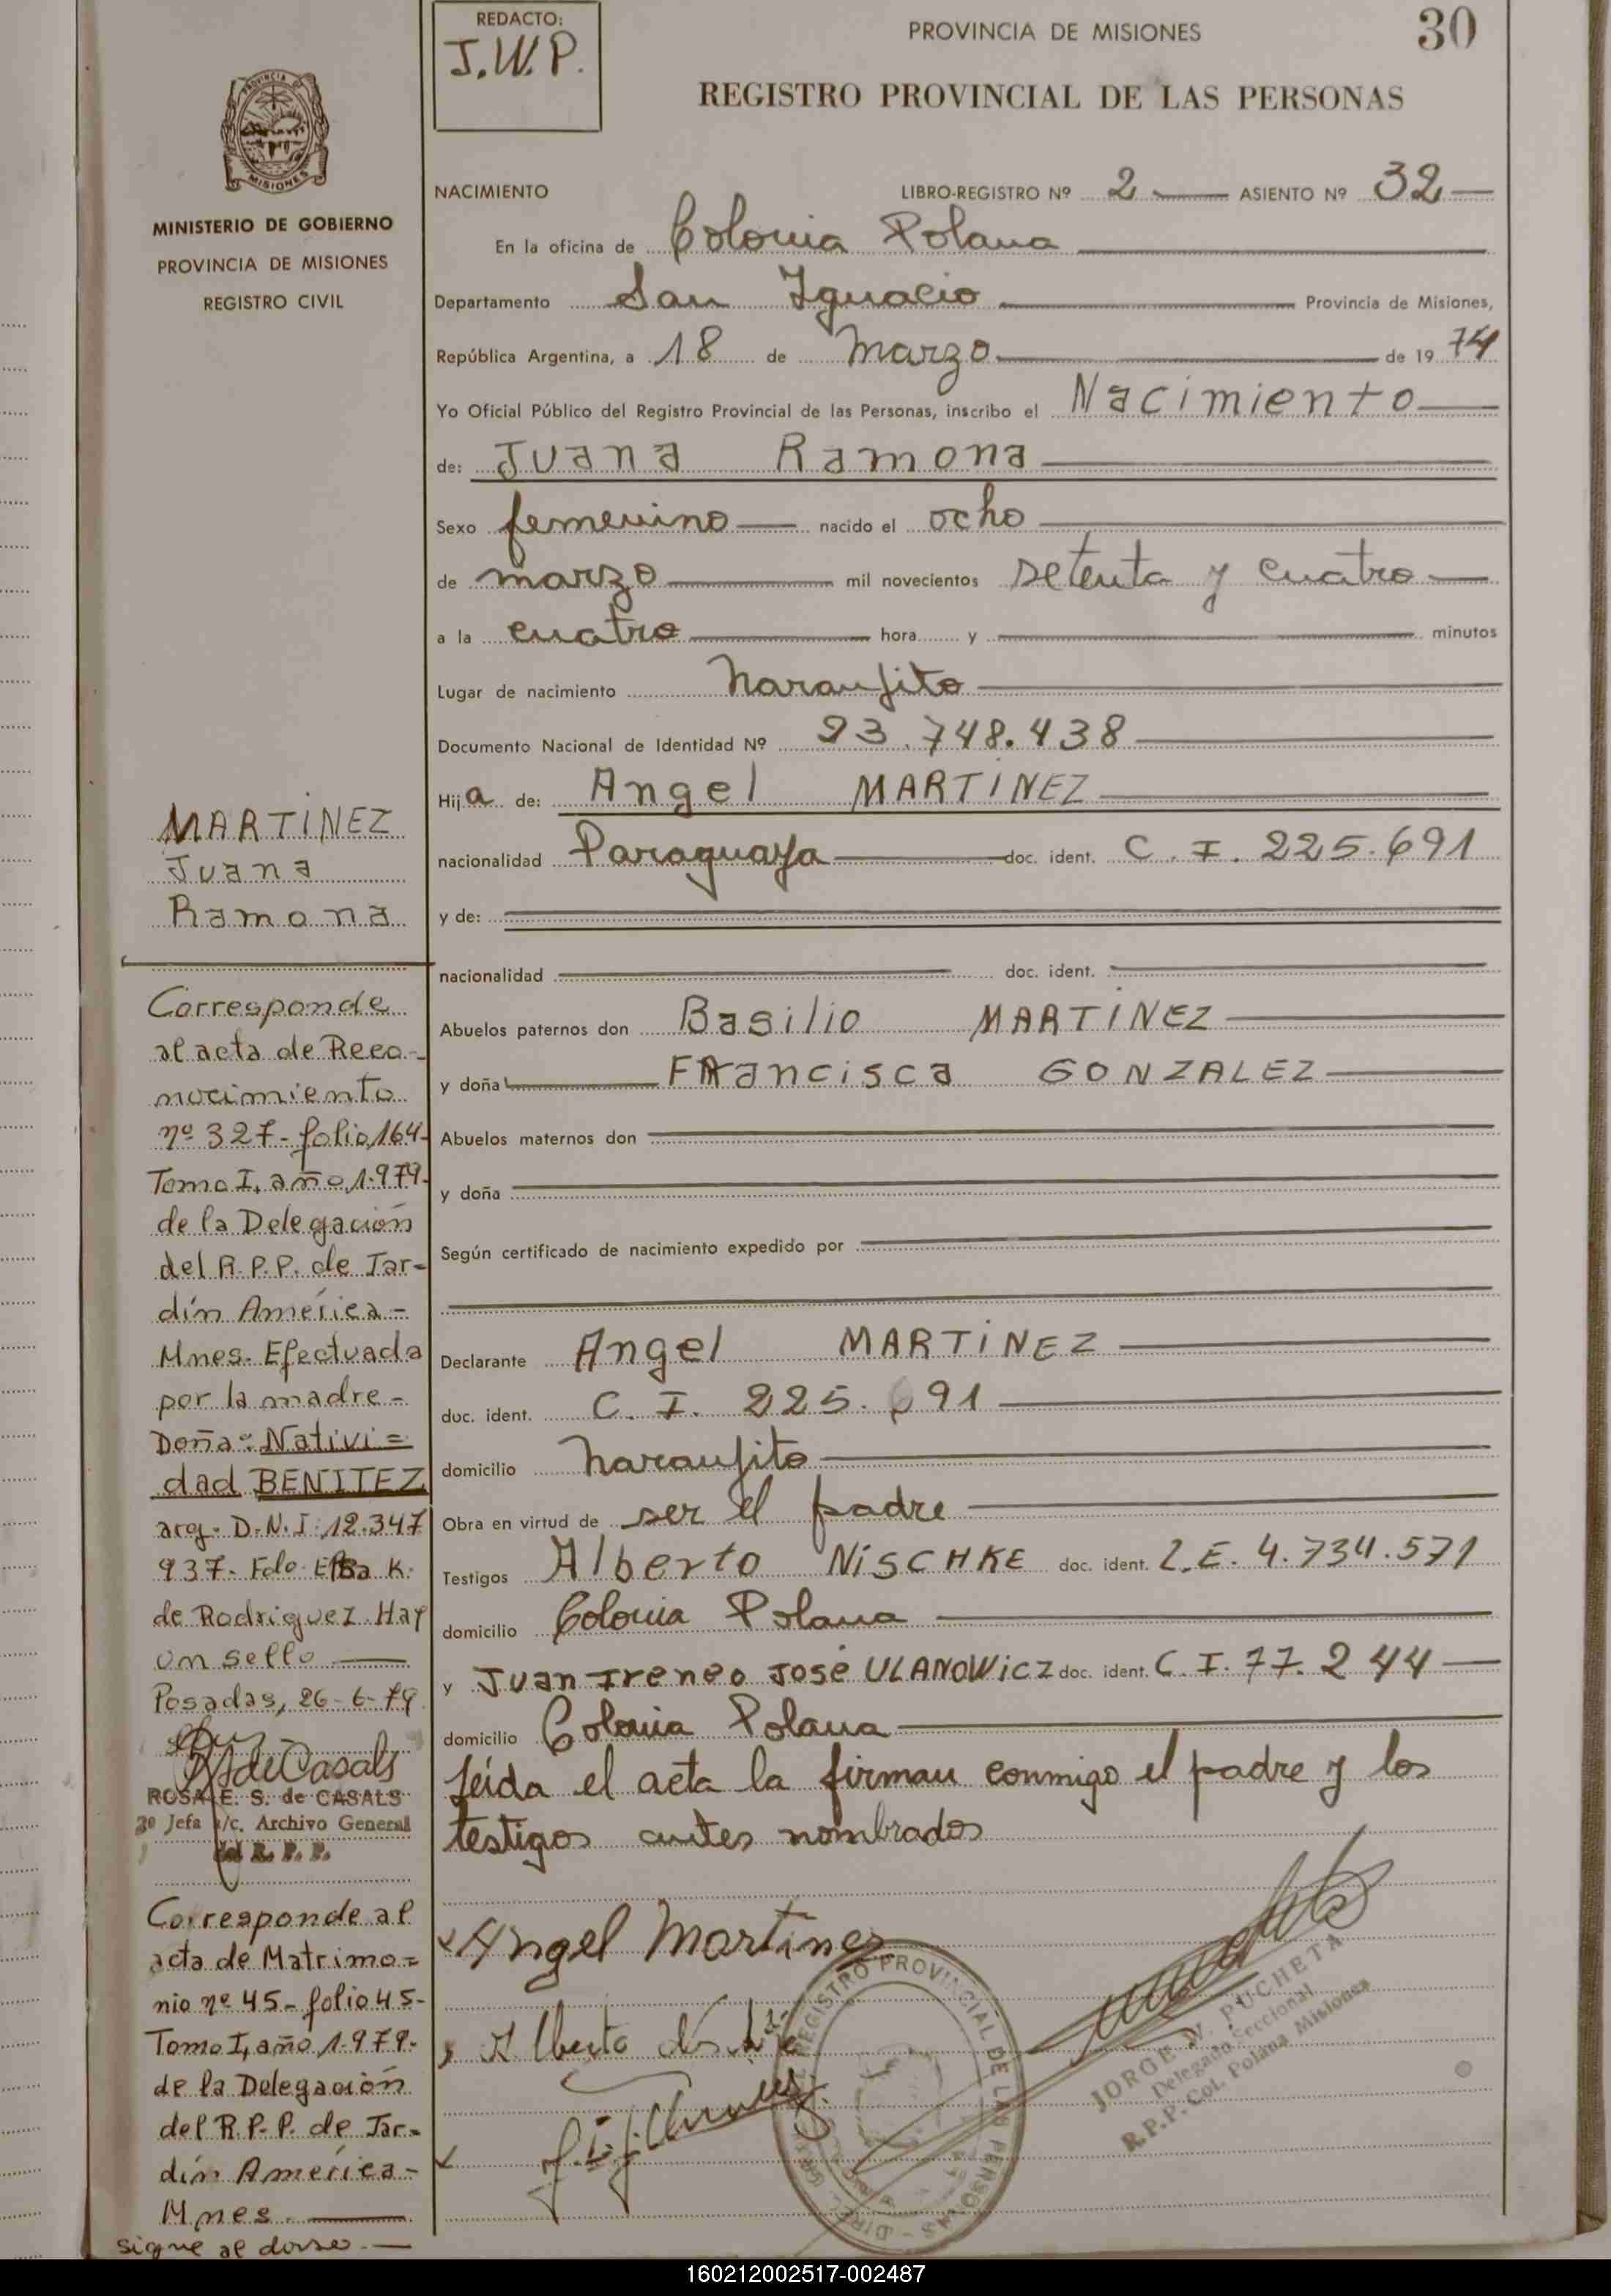 REDACTO:
J.W.P.
PROVINCIA DE MISIONES
30
REGISTRO PROVINCIAL DE LAS PERSONAS
PROVINCIA DE
MISIONES
MINISTERIO DE GOBIERNO
PROVINCIA DE MISIONES
REGISTRO CIVIL
NACIMIENTO LIBRO-REGISTRO Nº 2 ASIENTO Nº 32
En la oficina de Colonia Polana
Departamento San Ignacio Provincia de Misiones,
República Argentina, a 18 de Marzo de 1974
Yo Oficial Público del Registro Provincial de las Personas, inscribo el Nacimiento
de: Juana Ramona
Sexo femenino nacido el ocho
de marzo mil novecientos setenta y cuatro
a la cuatro hora y minutos
Lugar de nacimiento Naranjito
Documento Nacional de Identidad Nº 23.748.438
Hija de: Angel MARTINEZ
nacionalidad Paraguaya doc. ident. C.I. 225.691
y de:
nacionalidad doc. ident.
Abuelos paternos don Basilio MARTINEZ
y doña Francisca GONZALEZ
Abuelos maternos don
y doña
Según certificado de nacimiento expedido por
Declarante Angel MARTINEZ
doc. ident. C.I. 225.691
domicilio Naranjito
Obra en virtud de ser el padre
Testigos Alberto NISCHKE doc. ident. L.E. 4.734.571
domicilio Colonia Polana
y Juan Ireneo José ULANOWicz doc. ident. C.I. 77.244
domicilio Colonia Polana
Leída el acta la firman conmigo el padre y los
testigos antes nombrados
Angel Martinez
Alberto
REGISTRO PROVINCIAL DE LAS PERSONAS
JORGE W. PUCHETA
Delegado Seccional
R.P.P. Col. Polana Misiones
MARTINEZ
Juana
Ramona
Corresponde
al acta de Reco-
nocimiento
nº 327- folio 164-
Tomo I, año 1.979-
de la Delegación
del R.P.P. de Jar-
dín América-
Mnes. Efectuada
por la madre-
Doña: Nativi=
dad BENITEZ
arg. D.N.I. 12.347
937- Fdo. Elba K.
de Rodriguez. Hay
un sello
Posadas, 26-6-79
ROSA E. S. de CASALS
2º Jefa a/c. Archivo General
del R. P. P.
Corresponde al
acta de Matrimo=
nio nº 45- folio 45-
Tomo I, año 1.979-
de la Delegación
del R.P.P. de Jar=
dín América-
Mnes.
sigue al dorso.-
160212002517-002487